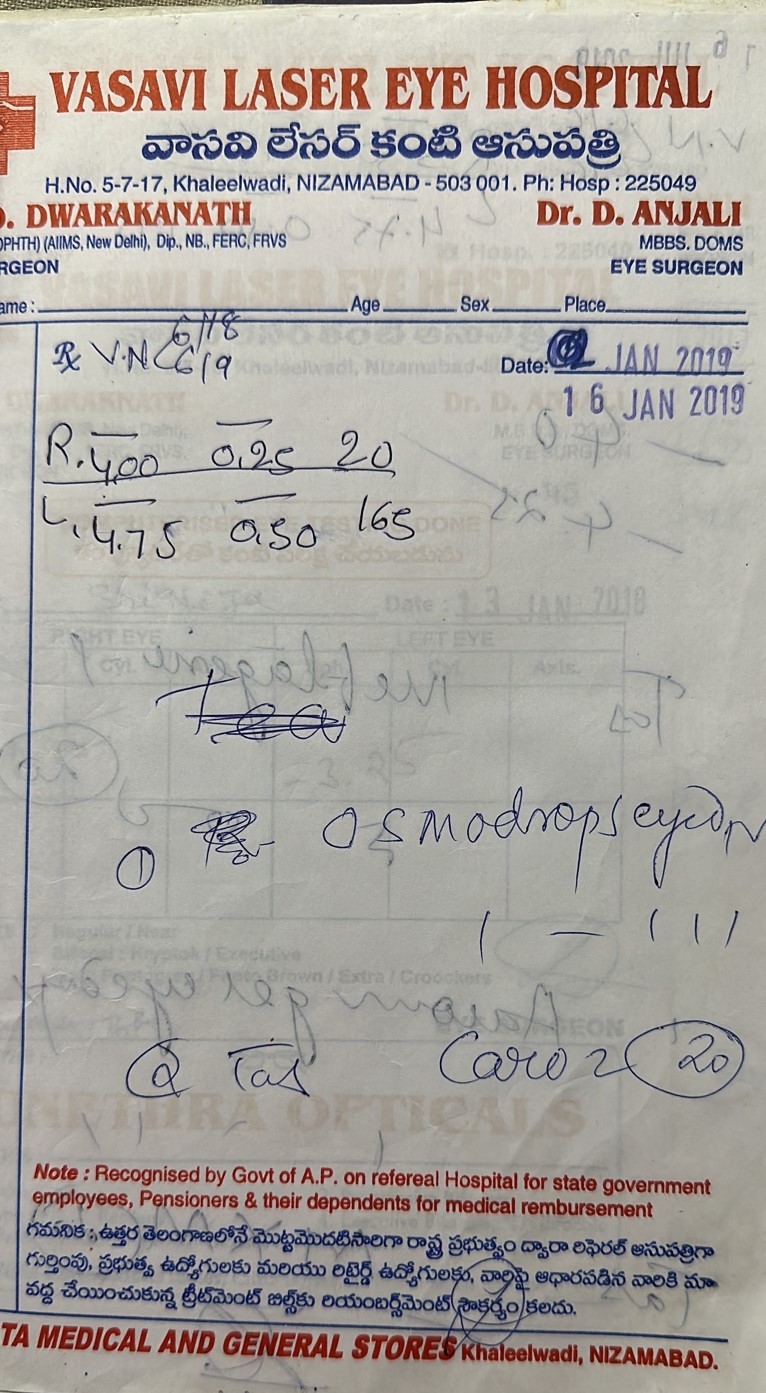 VASAVI LASER EYE HOSPITAL
వాసవి లేసర్ కంటి ఆసుపత్రి
H.No. 5-7-17, Khaleelwadi, NIZAMABAD - 503 001. Ph: Hosp : 225049
. DWARAKANATH Dr. D. ANJALI
OPHTH) (AIIMS, New Delhi), Dip., NB., FERC, FRVS MBBS. DOMS
RGEON EYE SURGEON
ame : Age Sex Place
Rx V.N 6/18
6/9
Date: JAN 2019
16 JAN 2019
R. 4.00 0.25 20
L. 4.75 0.50 165
① Osmodrops
1 — 111
② Caroz 20
Note : Recognised by Govt of A.P. on refereal Hospital for state government
employees, Pensioners & their dependents for medical rembursement
గమనిక : ఉత్తర తెలంగాణలోనే మొట్టమొదటిసారిగా రాష్ట్ర ప్రభుత్వం ద్వారా రిఫెరల్ ఆసుపత్రిగా
గుర్తింపు, ప్రభుత్వ ఉద్యోగులకు మరియు రిటైర్డ్ ఉద్యోగులకు, వారిపై ఆధారపడిన వారికి మా
వద్ద చేయించుకున్న ట్రీట్‌మెంట్ బిల్స్‌కు రియంబర్స్‌మెంట్ సౌకర్యం కలదు.
TA MEDICAL AND GENERAL STORES Khaleelwadi, NIZAMABAD.